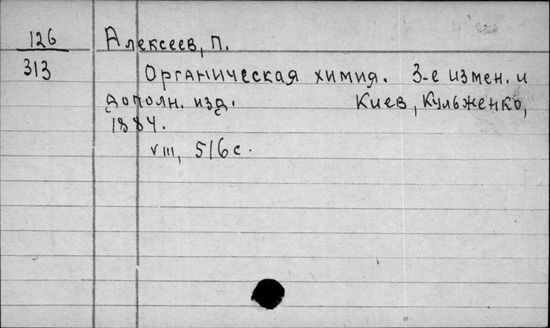 126
313
Алексеев, П.
Органическая химия. 3-е измен. и
дополн. изд. Киев, Кульженко,
1884.
VIII, 516 с.